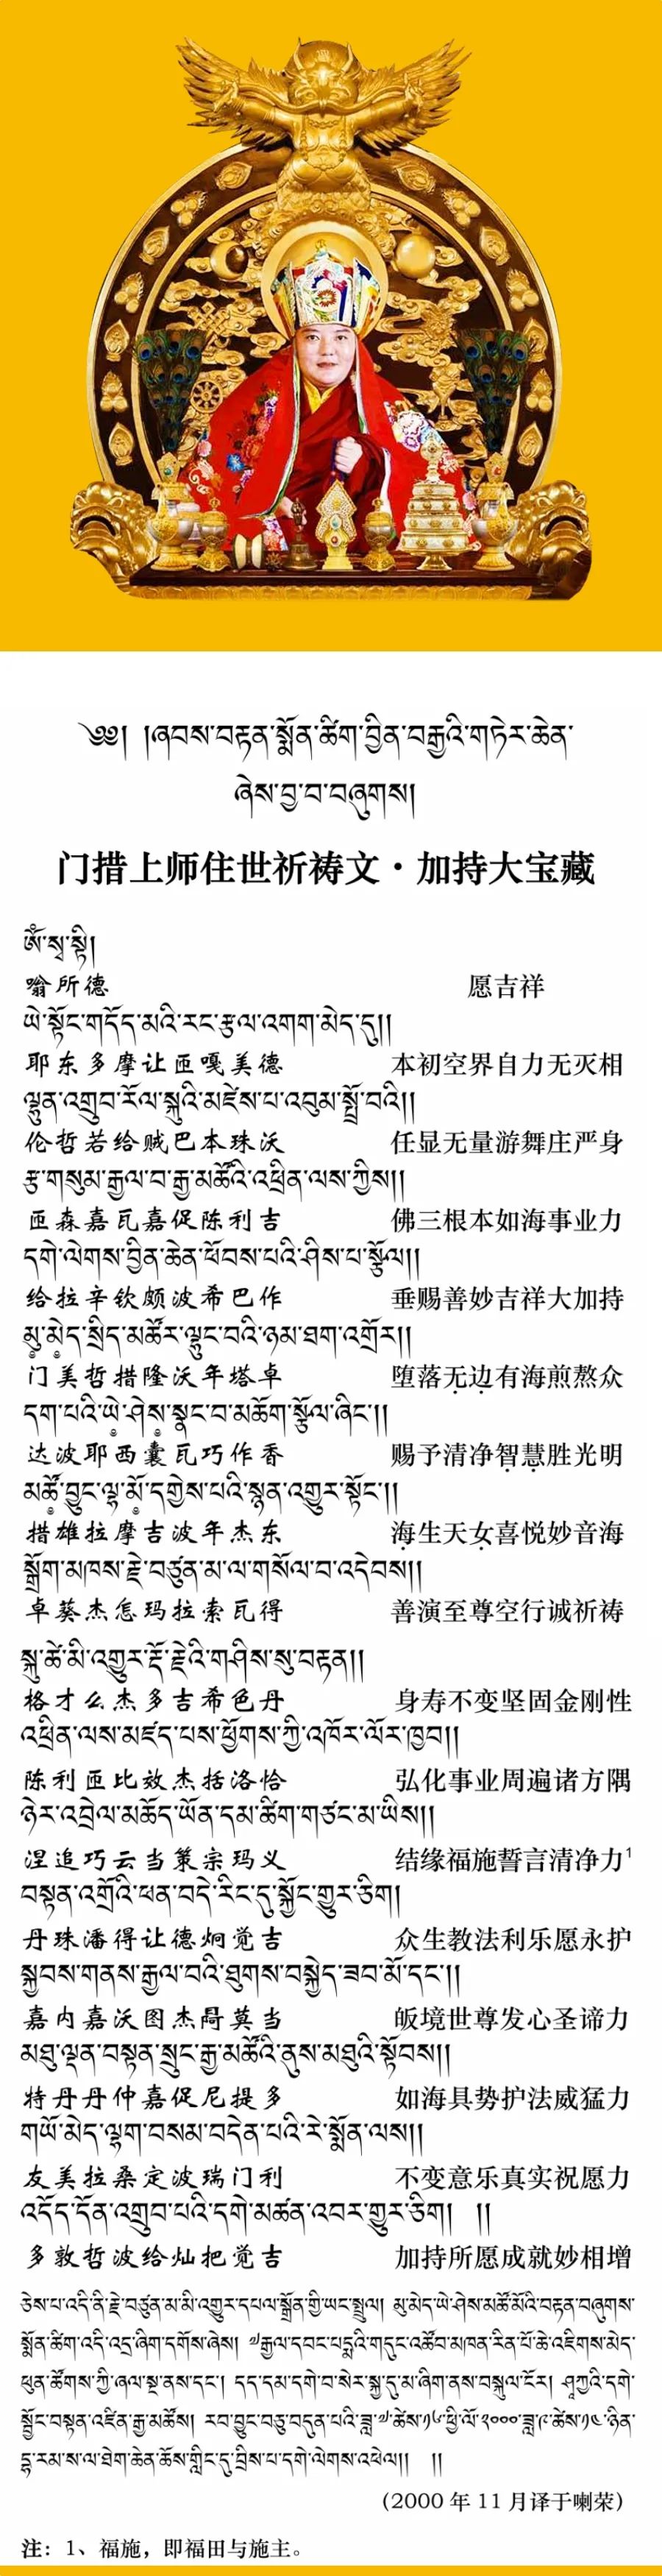 ༄༅། །ཞབས་བརྟན་སྨོན་ཚིག་བྱིན་བརླབས་གཏེར་ཆེན་
ཞེས་བྱ་བ་བཞུགས།
门措上师住世祈祷文·加持大宝藏
ༀ་སྭ་སྟི།
嗡所德 愿吉祥
ཡེ་སྟོང་གདོད་མའི་རང་རྩལ་འགག་མེད་དུ།།
耶东多摩让匝嘎美德 本初空界自力无灭相
ལྷུན་འགྲུབ་རོལ་སྐུའི་མཛེས་པ་འབུམ་སྤྲོ་བའི།།
伦哲若给贼巴本珠沃 任显无量游舞庄严身
རྩ་གསུམ་རྒྱལ་བ་རྒྱ་མཚོའི་འཕྲིན་ལས་ཀྱིས།།
匝森嘉瓦嘉促陈利吉 佛三根本如海事业力
དགེ་ལེགས་བྱིན་ཆེན་ཕོབས་པའི་ཤིས་པ་སྩོལ།།
给拉辛钦颇波希巴作 垂赐善妙吉祥大加持
མུ་མེད་སྲིད་མཚོར་ལྷུང་བའི་ཉམ་ཐག་འགྲོར།།
门美哲措隆沃年塔卓 堕落无边有海煎熬众
དག་པའི་ཡེ་ཤེས་སྣང་བ་མཆོག་སྩོལ་ཞིང་།།
达波耶西囊瓦巧作香 赐予清净智慧胜光明
མཚོ་བྱུང་ལྷ་མོ་དགྱེས་པའི་སྙན་འགྱུར་སྟོང་།།
措雄拉摩吉波年杰东 海生天女喜悦妙音海
སྒྲོག་མཁས་རྗེ་བཙུན་མ་ལ་གསོལ་བ་འདེབས།།
卓葵杰怎玛拉索瓦得 善演至尊空行诚祈祷
སྐུ་ཚེ་མི་འགྱུར་རྡོ་རྗེའི་གཤིས་སུ་བརྟན།།
格才么杰多吉希色丹 身寿不变坚固金刚性
འཕྲིན་ལས་མཛད་པས་ཕྱོགས་ཀྱི་འཁོར་ལོར་ཁྱབ།།
陈利匝比效杰括洛恰 弘化事业周遍诸方隅
ཉེར་འབྲེལ་མཆོད་ཡོན་དམ་ཚིག་གཙང་མ་ཡིས།།
涅追巧云当策宗玛义 结缘福施誓言清净力¹
བསྟན་འགྲོའི་ཕན་བདེ་རིང་དུ་སྐྱོང་གྱུར་ཅིག།
丹珠潘得让德炯觉吉 众生教法利乐愿永护
སྐྱབས་གནས་རྒྱལ་བའི་ཐུགས་བསྐྱེད་ཟབ་མོ་དང་།།
嘉内嘉沃图杰莫当 皈境世尊发心圣谛力
མཐུ་ལྡན་བསྟན་སྲུང་རྒྱ་མཚོའི་ནུས་མཐུའི་སྟོབས།།
特丹丹仲嘉促尼提多 如海具势护法威猛力
གཡོ་མེད་ལྷག་བསམ་བདེན་པའི་རེ་སྨོན་ལས།།
友美拉桑定波瑞门利 不变意乐真实祝愿力
འདོད་དོན་འགྲུབ་པའི་དགེ་མཚན་འབར་གྱུར་ཅིག། །།
多敦哲波给灿把觉吉 加持所愿成就妙相增
ཅེས་པ་འདི་ནི་རྗེ་བཙུན་མ་མི་འགྱུར་དཔལ་སྒྲོན་གྱི་ཡང་སྤྲུལ། མུ་མེད་ཡེ་ཤེས་མཚོ་མོའི་བརྟན་བཞུགས་
སྨོན་ཚིག་འདི་འདྲ་ཞིག་དགོས་ཞེས། ༧རྒྱལ་དབང་པདྨའི་གདུང་འཚོབ་མཁན་རིན་པོ་ཆེ་འཇིགས་མེད་
ཕུན་ཚོགས་ཀྱི་ཞལ་སྔ་ནས་དང་། དད་དམ་དགེ་བ་སེར་སྐྱ་དུ་མ་ཞིག་ནས་བསྐུལ་ངོར། ཤཱཀྱའི་དགེ་
སྦྱོང་བསྟན་འཛིན་རྒྱ་མཚོས། རབ་བྱུང་བཅུ་བདུན་པའི་ཟླ་༧ཚེས་༡༦ཕྱི་ལོ་༢༠༠༠ཟླ་༩ཚེས་༡༤ཉིན་
དྷ་རམ་ས་ལ་ཐེག་ཆེན་ཆོས་གླིང་དུ་བྲིས་པ་དགེ་ལེགས་འཕེལ།། །།
（2000 年 11 月译于喇荣）
注：1、福施，即福田与施主。